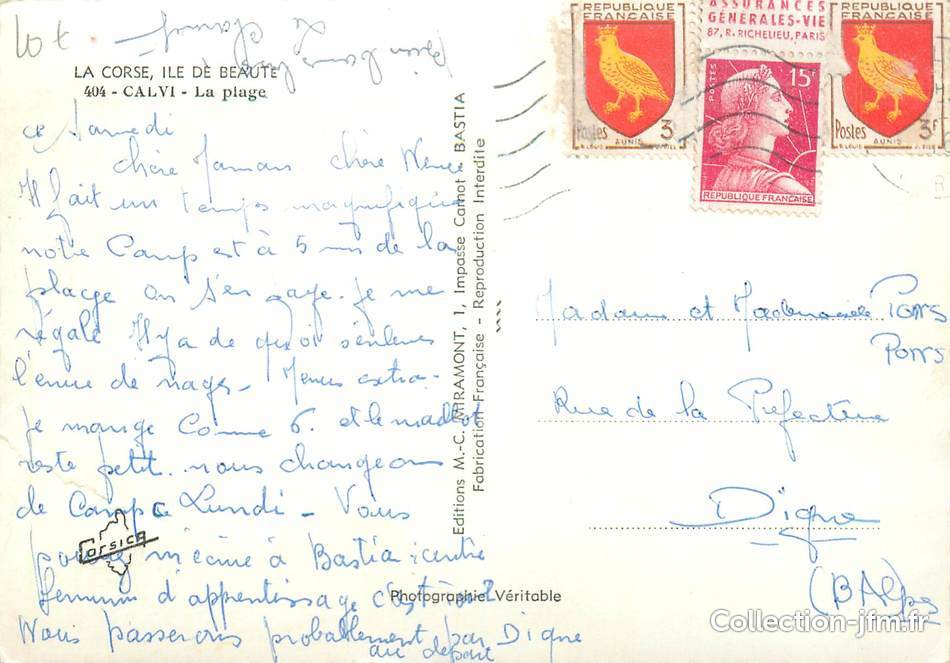 LA CORSE, ILE DE BEAUTÉ
404 - CALVI - La plage
ce Samedi
chère Maman chère
Il fait un temps magnifique
notre Camp est à 5 m de la
plage on s'en gaye. je me
régale Il y a de quoi s'enlever
l'envie de nager - Menus extra -
je mange Comme 6. et le maillot
reste petit. nous changeons
de Camp ce Lundi - Vous
pouvez m'écrire à Bastia : centre
féminin d'apprentissage c'est où ?
Nous passerons probablement par Digne
au départ
Corsica
Editions M.-C. MIRAMONT, 1, Impasse Carnot BASTIA
Fabrication Française - Reproduction Interdite
Photographie Véritable
REPUBLIQUE FRANÇAISE
Postes 3F
AUNIS
ASSURANCES
GÉNÉRALES-VIE
87, R. RICHELIEU, PARIS
POSTES 15F
REPUBLIQUE FRANÇAISE
REPUBLIQUE FRANÇAISE
Postes 3F
AUNIS
Madame et Mademoiselle PONS
PONS
Rue de la Préfecture
Digne
(B Alpes
Collection-jfm.fr